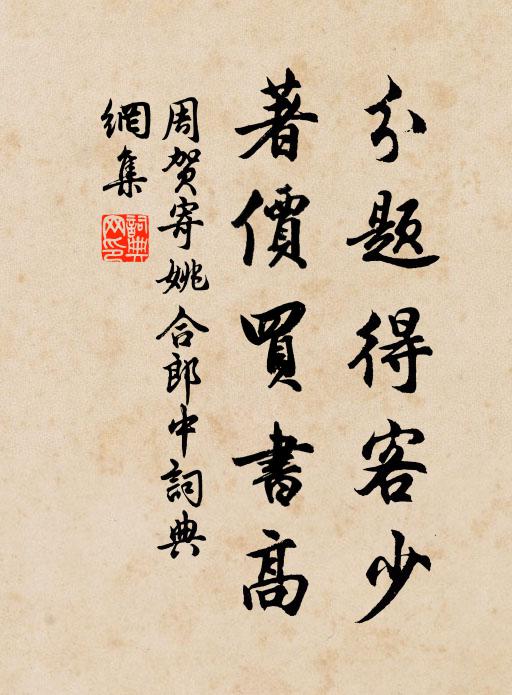 分题得客少
著價買書高
周贺寄姚合郎中詞典
網集
詞典网印